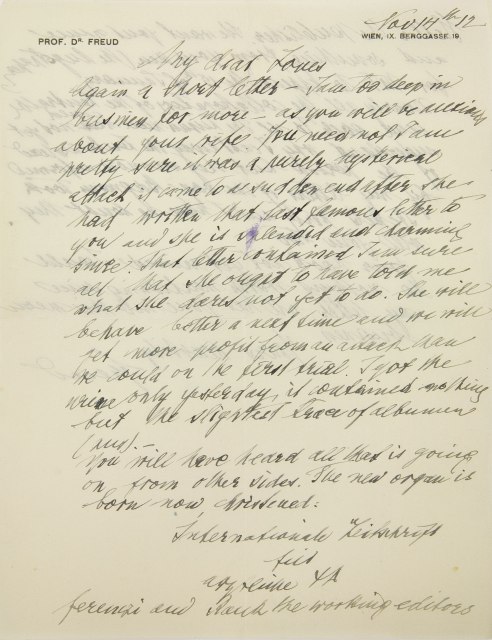 Nov 14th 12
PROF. DR. FREUD
WIEN, IX. BERGGASSE 19.
My dear Jones
Again a short letter – I am too deep in
business for more – as you will be anxious
about your wife. You need not I am
pretty sure it was a purely hysterical
attack it came to a sudden end after she
had written that last famous letter to
you and she is splendid and charming
since. That letter contained I am sure
all that she ought to have told me
what she does not yet to do. She will
behave better a next time and we will
get more profit from an attack than
we could on the first trial. I got the
urine only yesterday, it contained nothing
but the slightest trace of albumen
(pus). –
You will have heard all that is going
on from other sides. The new organ is
born now, christened:
Internationale Zeitschrift
für
ΨA
Ferenzi and Rank the working editors